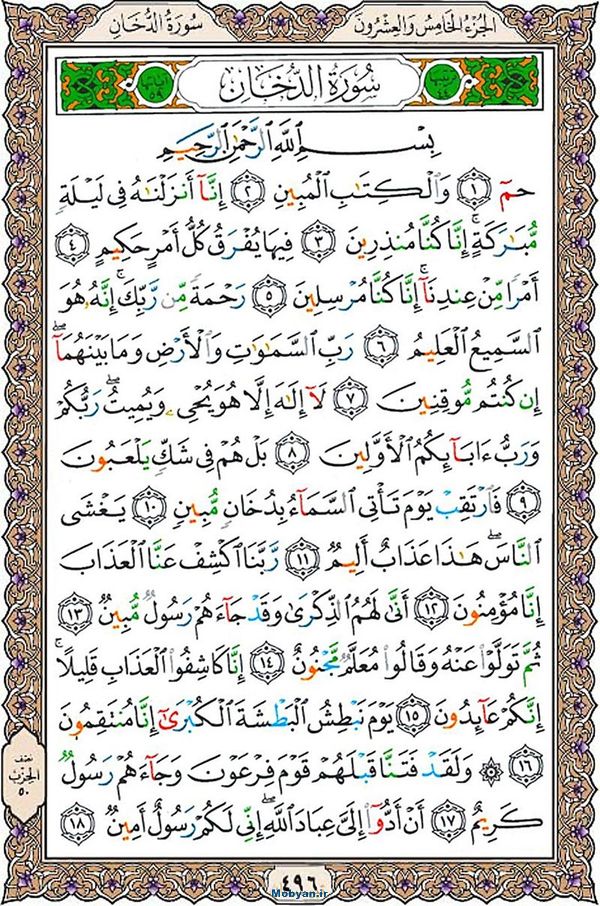 الجزء الخامس والعشرون سورة الدخان
سُورَةُ الدُّخَانِ
بِسْمِ ٱللَّهِ ٱلرَّحْمَٰنِ ٱلرَّحِيمِ
حمٓ ١ وَٱلْكِتَٰبِ ٱلْمُبِينِ ٢ إِنَّآ أَنزَلْنَٰهُ فِى لَيْلَةٍ
مُّبَٰرَكَةٍ ۚ إِنَّا كُنَّا مُنذِرِينَ ٣ فِيهَا يُفْرَقُ كُلُّ أَمْرٍ حَكِيمٍ ٤
أَمْرًا مِّنْ عِندِنَآ ۚ إِنَّا كُنَّا مُرْسِلِينَ ٥ رَحْمَةً مِّن رَّبِّكَ ۚ إِنَّهُۥ هُوَ
ٱلسَّمِيعُ ٱلْعَلِيمُ ٦ رَبِّ ٱلسَّمَٰوَٰتِ وَٱلْأَرْضِ وَمَا بَيْنَهُمَآ ۖ
إِن كُنتُم مُّوقِنِينَ ٧ لَآ إِلَٰهَ إِلَّا هُوَ يُحْىِۦ وَيُمِيتُ ۖ رَبُّكُمْ
وَرَبُّ ءَابَآئِكُمُ ٱلْأَوَّلِينَ ٨ بَلْ هُمْ فِى شَكٍّ يَلْعَبُونَ
٩ فَٱرْتَقِبْ يَوْمَ تَأْتِى ٱلسَّمَآءُ بِدُخَانٍ مُّبِينٍ ١٠ يَغْشَى
ٱلنَّاسَ ۖ هَٰذَا عَذَابٌ أَلِيمٌ ١١ رَّبَّنَا ٱكْشِفْ عَنَّا ٱلْعَذَابَ
إِنَّا مُؤْمِنُونَ ١٢ أَنَّىٰ لَهُمُ ٱلذِّكْرَىٰ وَقَدْ جَآءَهُمْ رَسُولٌ مُّبِينٌ ١٣
ثُمَّ تَوَلَّوْا۟ عَنْهُ وَقَالُوا۟ مُعَلَّمٌ مَّجْنُونٌ ١٤ إِنَّا كَاشِفُوا۟ ٱلْعَذَابِ قَلِيلًا ۚ
إِنَّكُمْ عَآئِدُونَ ١٥ يَوْمَ نَبْطِشُ ٱلْبَطْشَةَ ٱلْكُبْرَىٰٓ إِنَّا مُنتَقِمُونَ
١٦ ۞ وَلَقَدْ فَتَنَّا قَبْلَهُمْ قَوْمَ فِرْعَوْنَ وَجَآءَهُمْ رَسُولٌ
كَرِيمٌ ١٧ أَنْ أَدُّوٓا۟ إِلَىَّ عِبَادَ ٱللَّهِ ۖ إِنِّى لَكُمْ رَسُولٌ أَمِينٌ ١٨
نصف
الحزب
٥٠
٤٩٦
Mobyan.ir